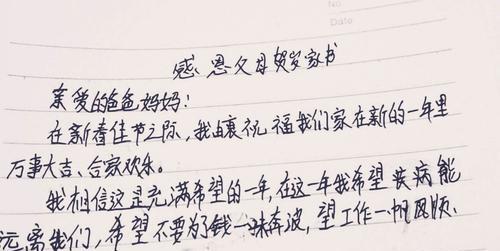 No
Date
感恩父母贺岁家书
亲爱的爸爸妈妈：
在新春佳节之际，我衷祝福我们家在新的一年里
万事大吉、合家欢乐。
我相信这是充满希望的一年，在这一年我希望疾病能
远离我们，希望不要为了钱一味奔波，望工作一帆风顺、